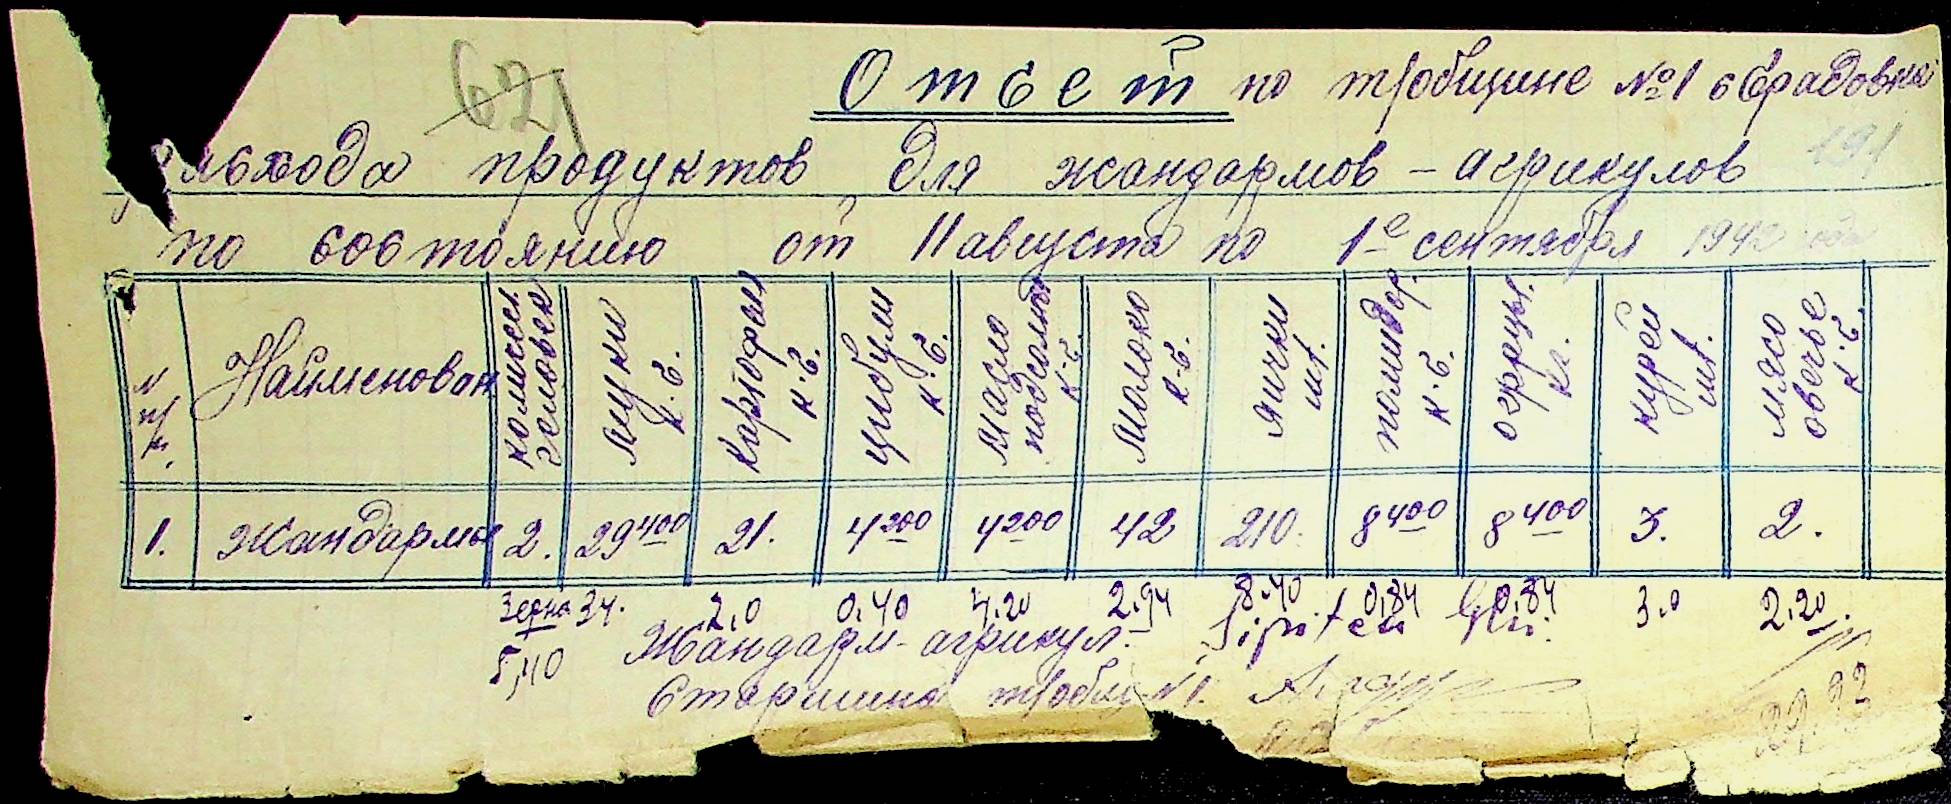 621
Отсет по т/общине №1 с Градовка
191
расхода продуктов для жандармов – агрикулов
по состоянию от 11 августа по 1е сентября 1942 года
N п/п. Наименован колисел человек муки к.г. картофел к.г. цыбули к.г. масло подсолно к.г. Молоко к.г. яички шт. помидор. к.г. огурцы. кг. курей шт. мясо овечье к.г.
1. Жандармы 2. 29400 21. 4200 4200 42 210. 8400 8400 3. 2.
Зерна 34. 2,0 0.40 4.20 2.94 8.40 0,84 0,84 3.0 2.20.
5,40 Жандарм-агрикул.
Старшина т/общ. №1.
29,23